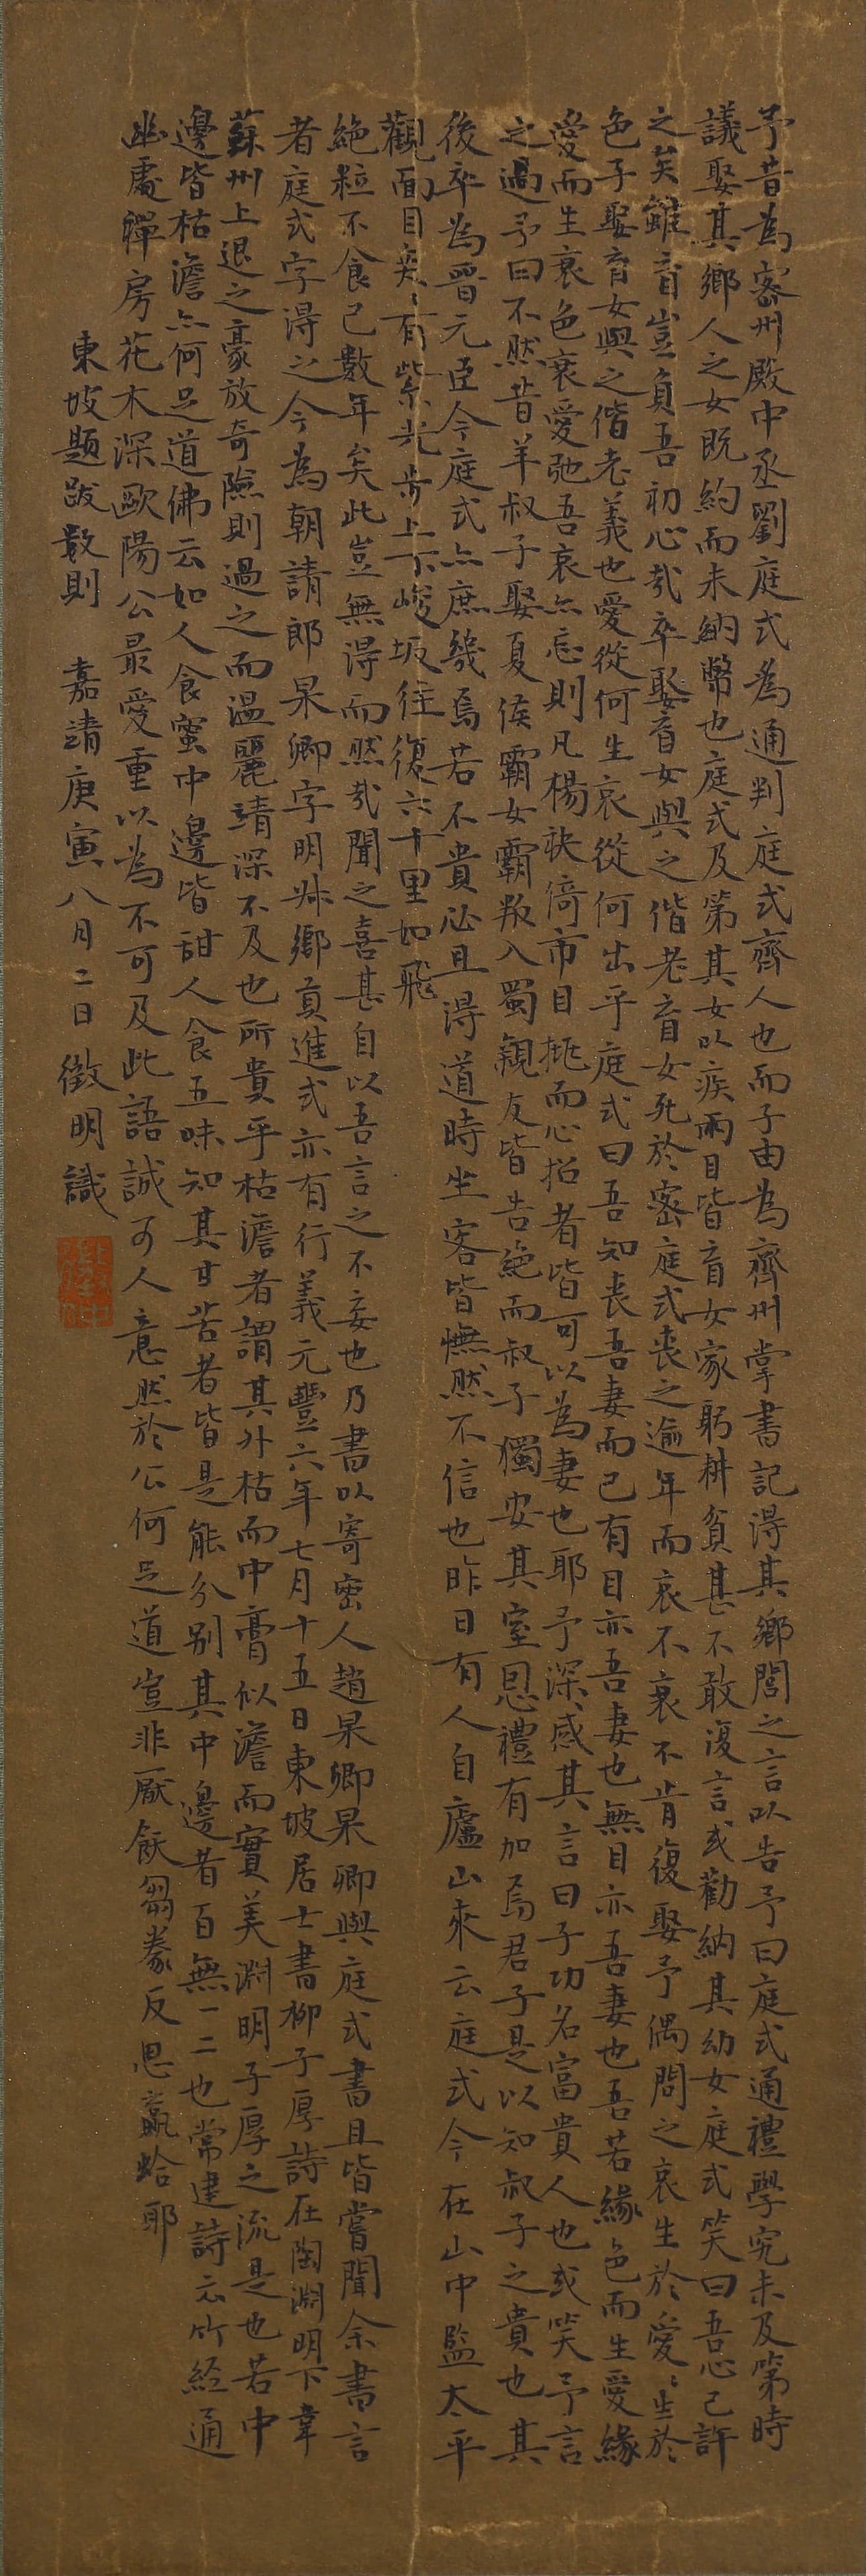 予昔為密州殿中丞劉庭式為通判庭式齊人也而子由為齊州掌書記得其鄉閭之言以告予曰庭式通禮學究未及第時
議娶其鄉人之女既約而未納幣也庭式及第其女以疾兩目皆盲女家躬耕貧甚不敢復言或勸納其幼女庭式笑曰吾心已許
之矣雖盲豈負吾初心哉卒娶盲女與之偕老盲女死於密庭式喪之逾年而哀不衰不肯復娶予偶問之哀生於愛〻生於
色子娶盲女與之偕老義也愛從何生哀從何出乎庭式曰吾知喪吾妻而已有目亦吾妻也無目亦吾妻也吾若緣色而生愛緣
愛而生哀色衰愛弛吾哀亦忘則凡楊袂倚市目挑而心招者皆可以為妻也耶予深感其言曰子功名富貴人也或笑予言
之過予曰不然昔羊叔子娶夏侯霸女霸叛入蜀親友皆告絕而叔子獨安其室恩禮有加焉君子是以知叔子之貴也其
後卒為晉元臣今庭式亦庶幾焉若不貴必且得道時坐客皆憮然不信也昨日有人自廬山來云庭式今在山中監太平
觀面目奕〻有紫光步上下峻坂往復六十里如飛
絕粒不食已數年矣此豈無得而然哉聞之喜甚自以吾言之不妄也乃書以寄密人趙杲卿杲卿與庭式書且皆嘗聞余書言
者庭式字得之今為朝請郎杲卿字明叔鄉貢進式亦有行義元豐六年七月十五日東坡居士書柳子厚詩在陶淵明下韋
蘇州上退之豪放奇險則過之而溫麗靖深不及也所貴乎枯澹者謂其外枯而中膏似澹而實美淵明子厚之流是也若中
邊皆枯澹亦何足道佛云如人食蜜中邊皆甜人食五味知其甘苦者皆是能分別其中邊者百無一二也常建詩云竹經通
幽處禪房花木深歐陽公最愛重以為不可及此語誠可人意然於公何足道豈非厭飫芻豢反思蠃蛤耶
東坡題跋數則 嘉靖庚寅八月二日徵明識